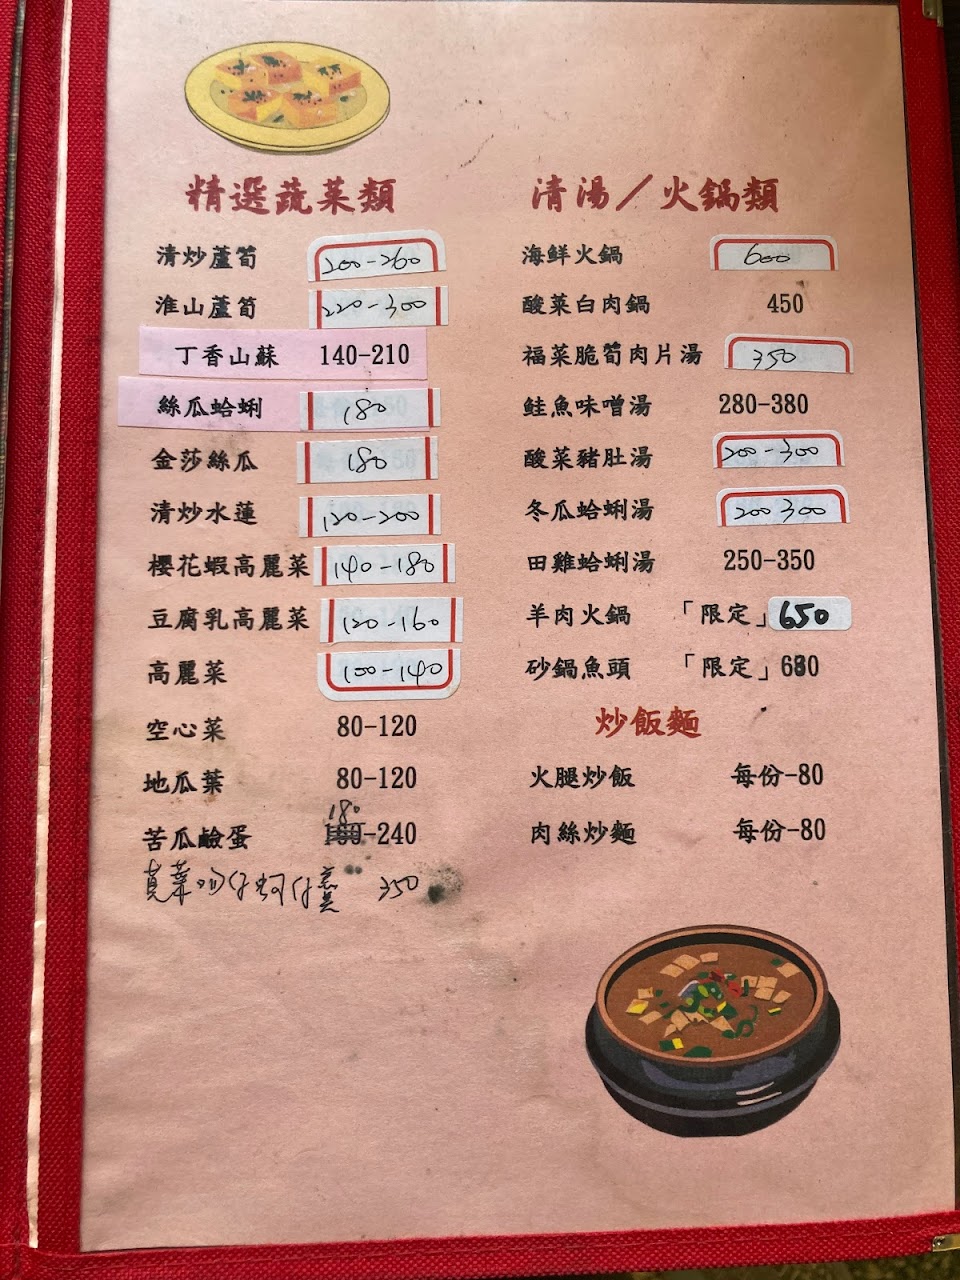 精選蔬菜類
清炒蘆筍 200-260
淮山蘆筍 220-300
丁香山蘇 140-210
絲瓜蛤蜊 180
金莎絲瓜 180
清炒水蓮 120-200
櫻花蝦高麗菜 140-180
豆腐乳高麗菜 120-160
高麗菜 100-140
空心菜 80-120
地瓜葉 80-120
180
苦瓜鹹蛋 -240
莧菜吻仔蚵仔羹 350
清湯/火鍋類
海鮮火鍋 600
酸菜白肉鍋 450
福菜脆筍肉片湯 350
鮭魚味噌湯 280-380
酸菜豬肚湯 200-300
冬瓜蛤蜊湯 200 300
田雞蛤蜊湯 250-350
羊肉火鍋 「限定」650
砂鍋魚頭 「限定」680
炒飯麵
火腿炒飯 每份-80
肉絲炒麵 每份-80